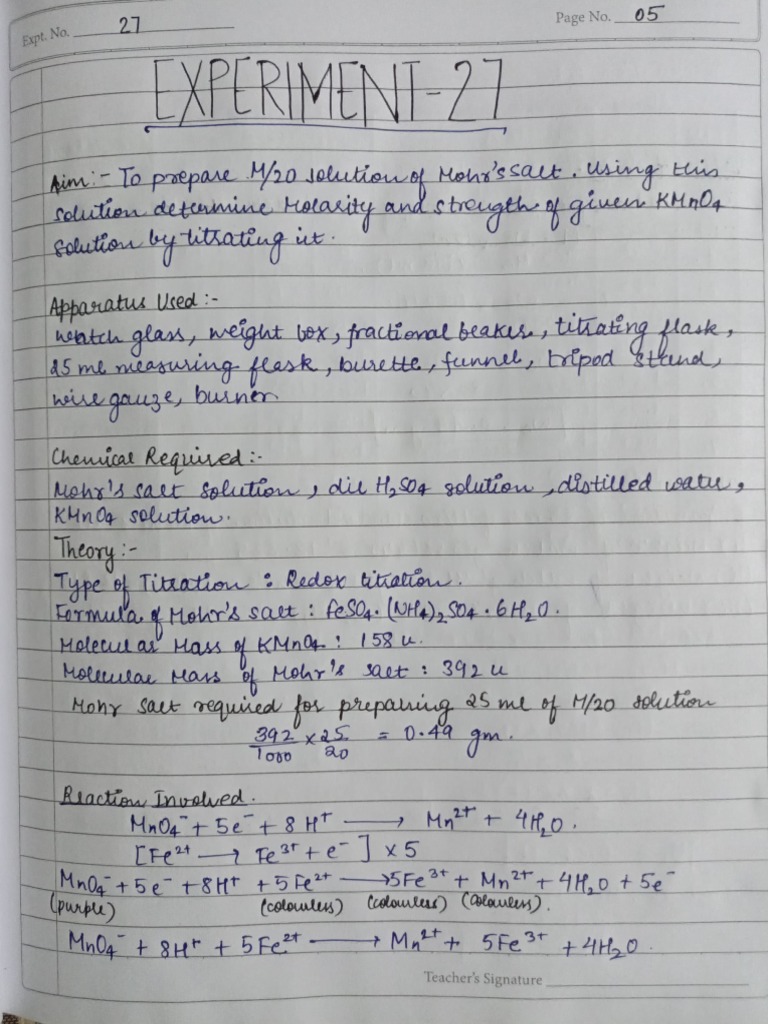 Expt. No. 27
Page No. 05
EXPERIMENT-27
Aim:- To prepare M/20 solution of Mohr's salt. Using this
solution determine Molarity and strength of given KMnO4
solution by titrating it.
Apparatus Used:-
watch glass, weight box, fractional beaker, titrating flask,
25 ml measuring flask, burette, funnel, tripod stand,
wire gauze, burner.
Chemical Required:-
Mohr's salt solution, dil H₂SO₄ solution, distilled water,
KMnO4 solution.
Theory:-
Type of Titration : Redox titration.
Formula of Mohr's salt : FeSO₄·(NH₄)₂SO₄·6H₂O.
Molecular Mass of KMnO₄ : 158 u.
Molecular Mass of Mohr's salt : 392 u
Mohr salt required for preparing 25 ml of M/20 solution
392/1000 × 25/20 = 0.49 gm.
Reaction Involved.
MnO₄⁻ + 5e⁻ + 8H⁺ ⟶ Mn²⁺ + 4H₂O.
[Fe²⁺ ⟶ Fe³⁺ + e⁻] × 5
MnO₄⁻ + 5e⁻ + 8H⁺ + 5Fe²⁺ ⟶ 5Fe³⁺ + Mn²⁺ + 4H₂O + 5e⁻
(purple) (colourless) (colourless) (colourless).
MnO₄⁻ + 8H⁺ + 5Fe²⁺ ⟶ Mn²⁺ + 5Fe³⁺ + 4H₂O.
Teacher's Signature